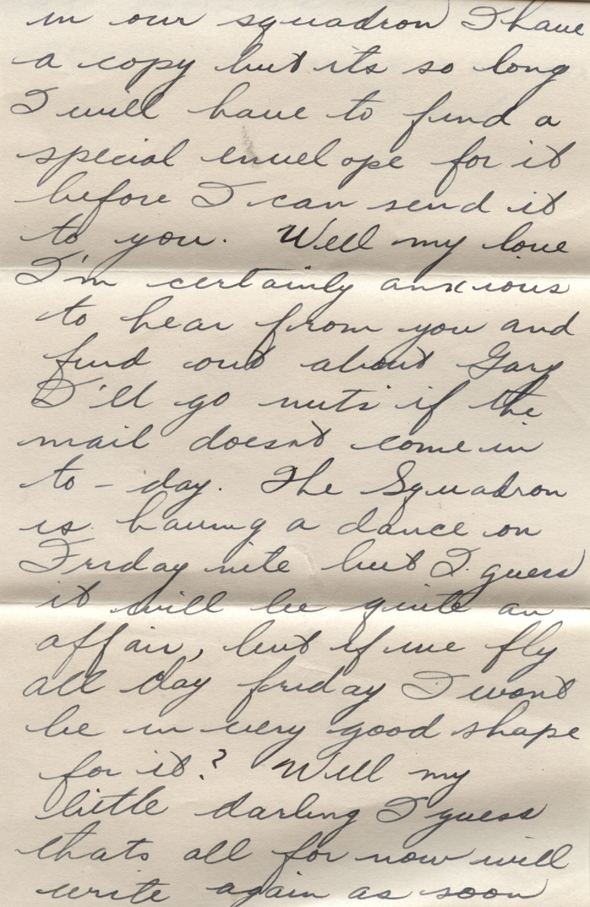 in our squadron I have
a copy but its so long
I will have to find a
special envelope for it
before I can send it
to you. Well my love
I'm certainly anxious
to hear from you and
find out about Gary
I'll go nuts if the
mail doesnt come in
to-day. The Squadron
is having a dance on
Friday nite but I guess
it will be quite an
affair, but if we fly
all day friday I wont
be in very good shape
for it? Well my
little darling I guess
thats all for now will
write again as soon